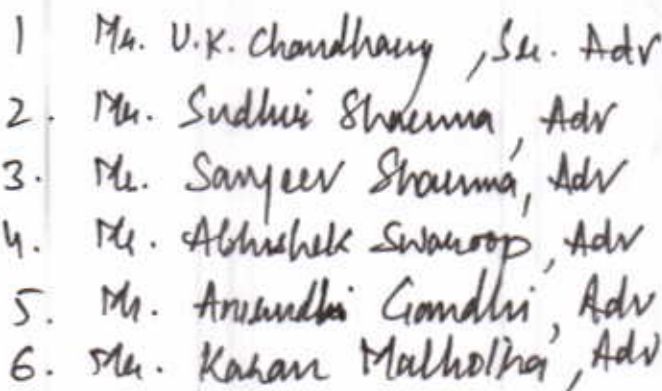 1 Mr. U.K. Chaudhary, Sr. Adv
2. Mr. Sudhir Sharma, Adv
3. Mr. Sanjeev Sharma, Adv
4. Mr. Abhishek Swaroop, Adv
5. Mr. Gandhi, Adv
6. Mr. Karan Malhotra, Adv